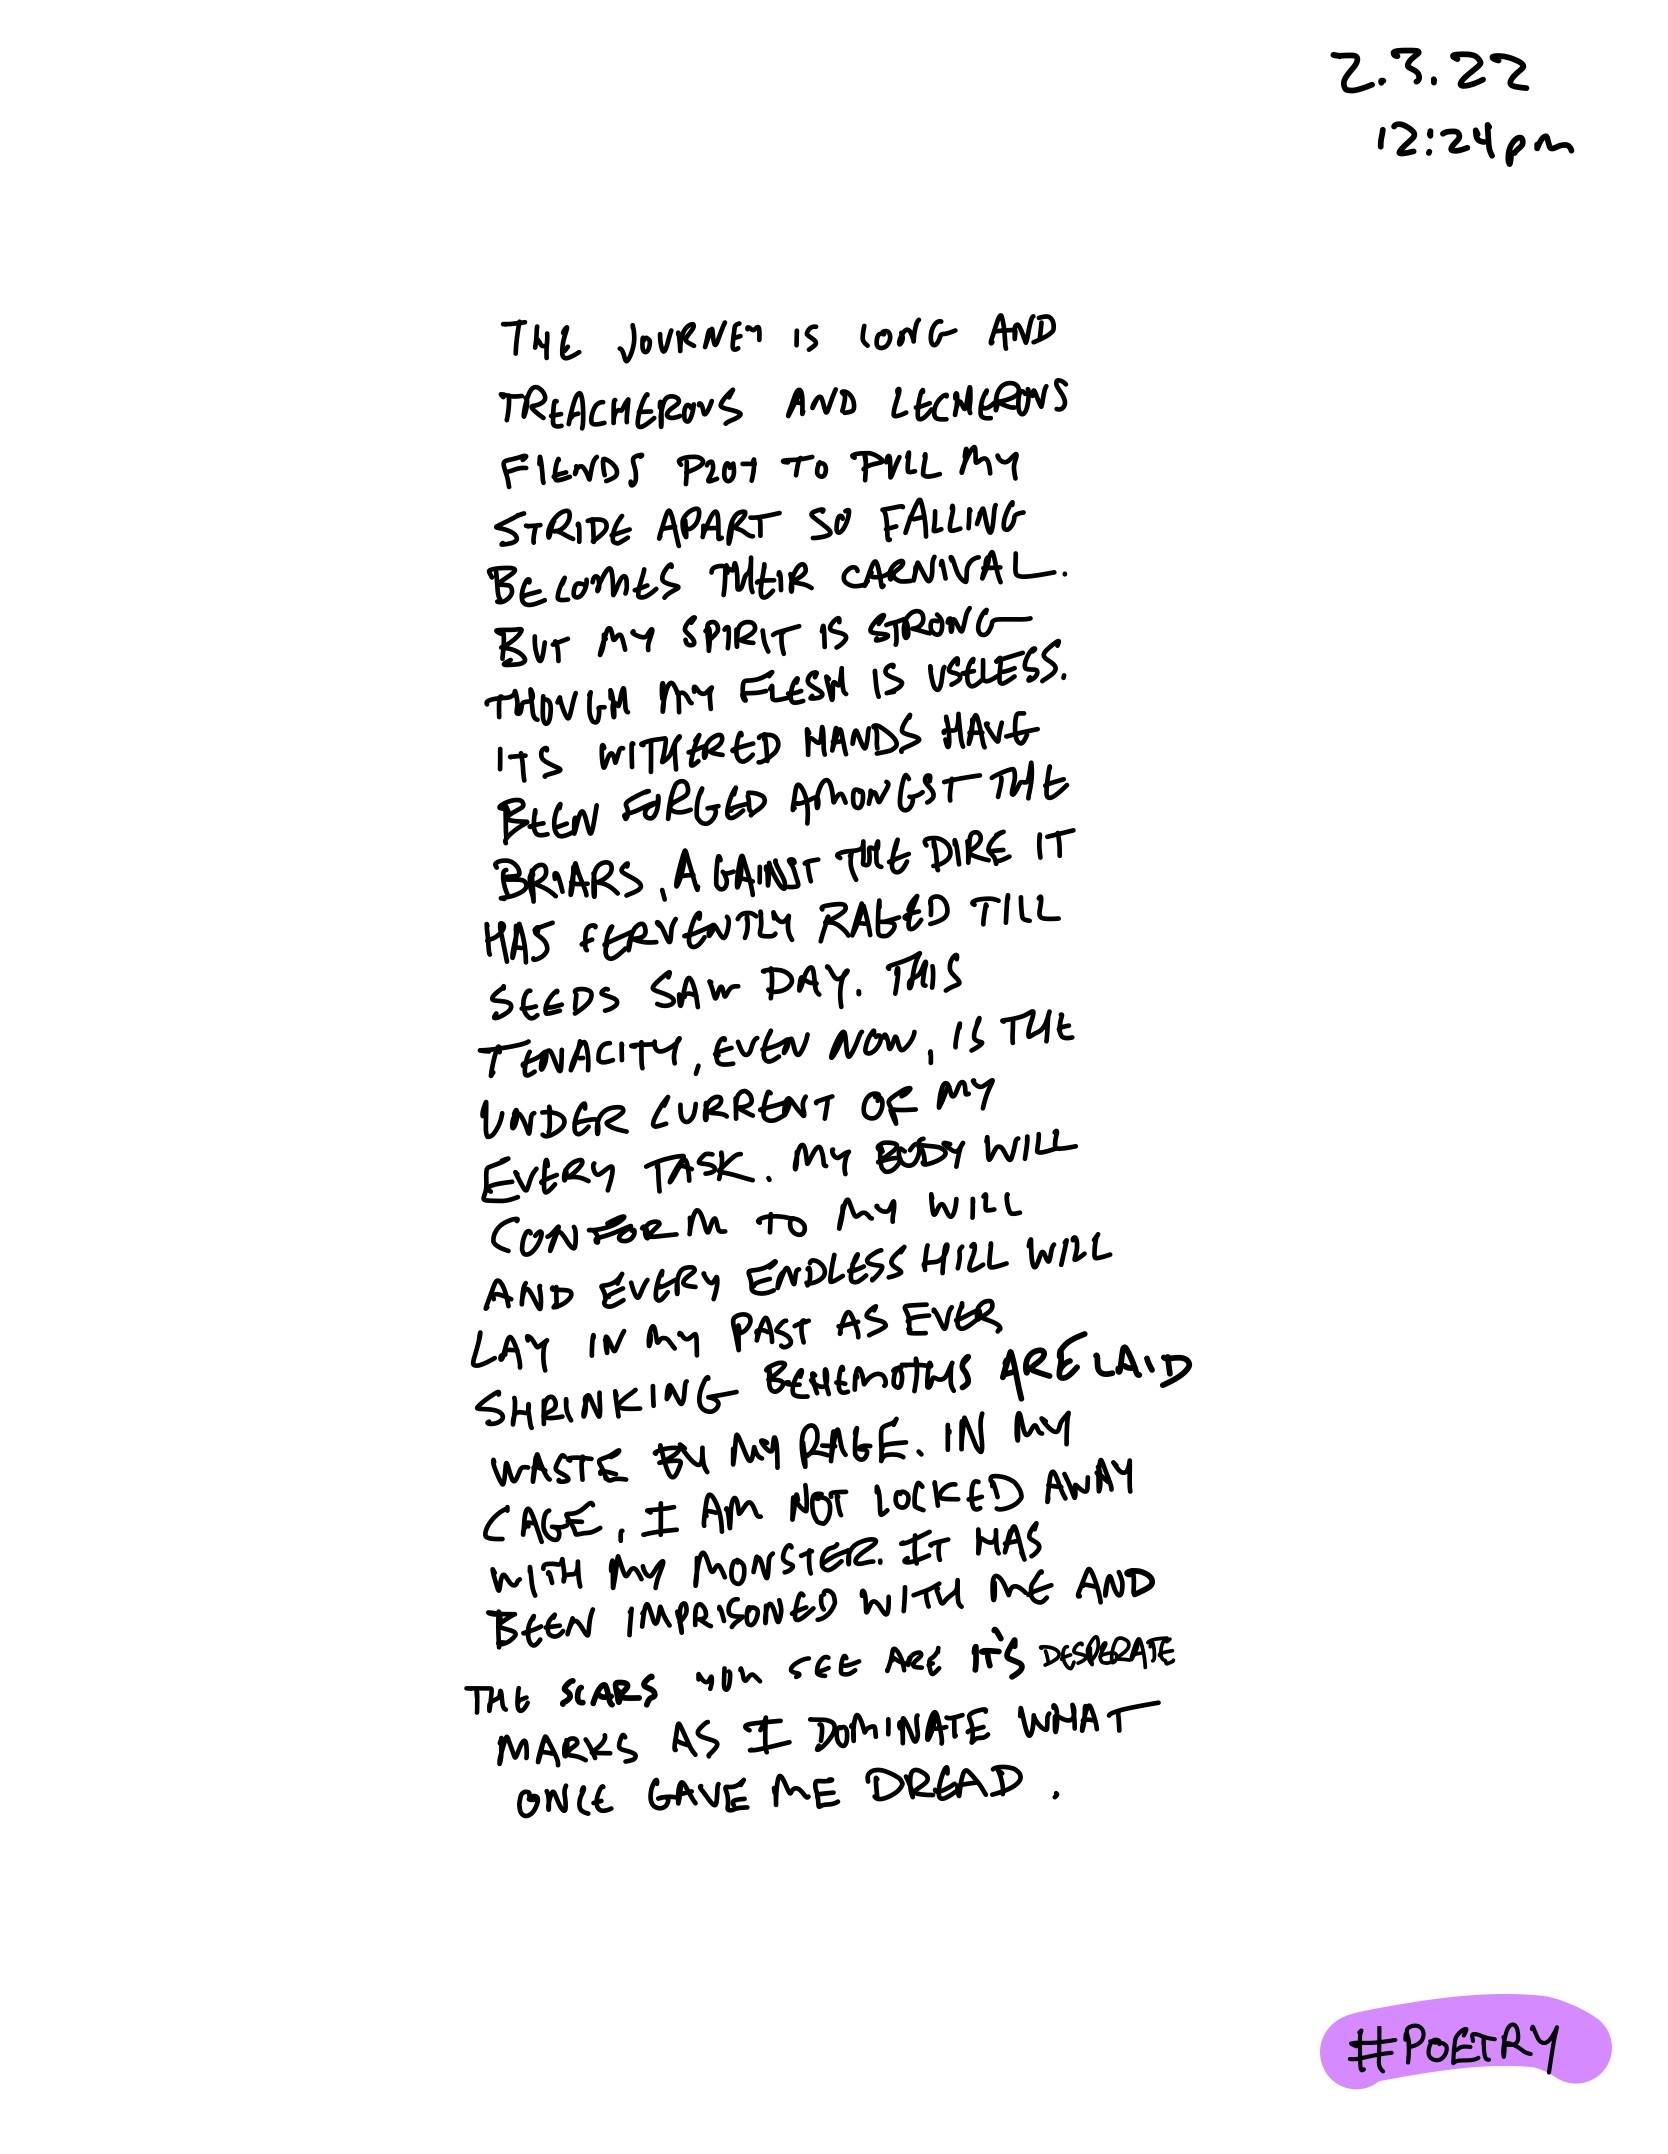 2.3.22
12:24pm
THE JOURNEY IS LONG AND
TREACHEROUS AND LECHEROUS
FIENDS PLOT TO PULL MY
STRIDE APART SO FALLING
BECOMES THEIR CARNIVAL.
BUT MY SPIRIT IS STRONG
THOUGH MY FLESH IS USELESS.
ITS WITHERED HANDS HAVE
BEEN FORGED AMONGST THE
BRIARS, AGAINST THE DIRE IT
HAS FERVENTLY RAGED TILL
SEEDS SAW DAY. THIS
TENACITY, EVEN NOW, IS THE
UNDER CURRENT OF MY
EVERY TASK. MY BODY WILL
CONFORM TO MY WILL
AND EVERY ENDLESS HILL WILL
LAY IN MY PAST AS EVER
SHRINKING BEHEMOTHS ARE LAID
WASTE BY MY RAGE. IN MY
CAGE, I AM NOT LOCKED AWAY
WITH MY MONSTER. IT HAS
BEEN IMPRISONED WITH ME AND
THE SCARS YOU SEE ARE IT'S DESPERATE
MARKS AS I DOMINATE WHAT
ONCE GAVE ME DREAD.
#POETRY